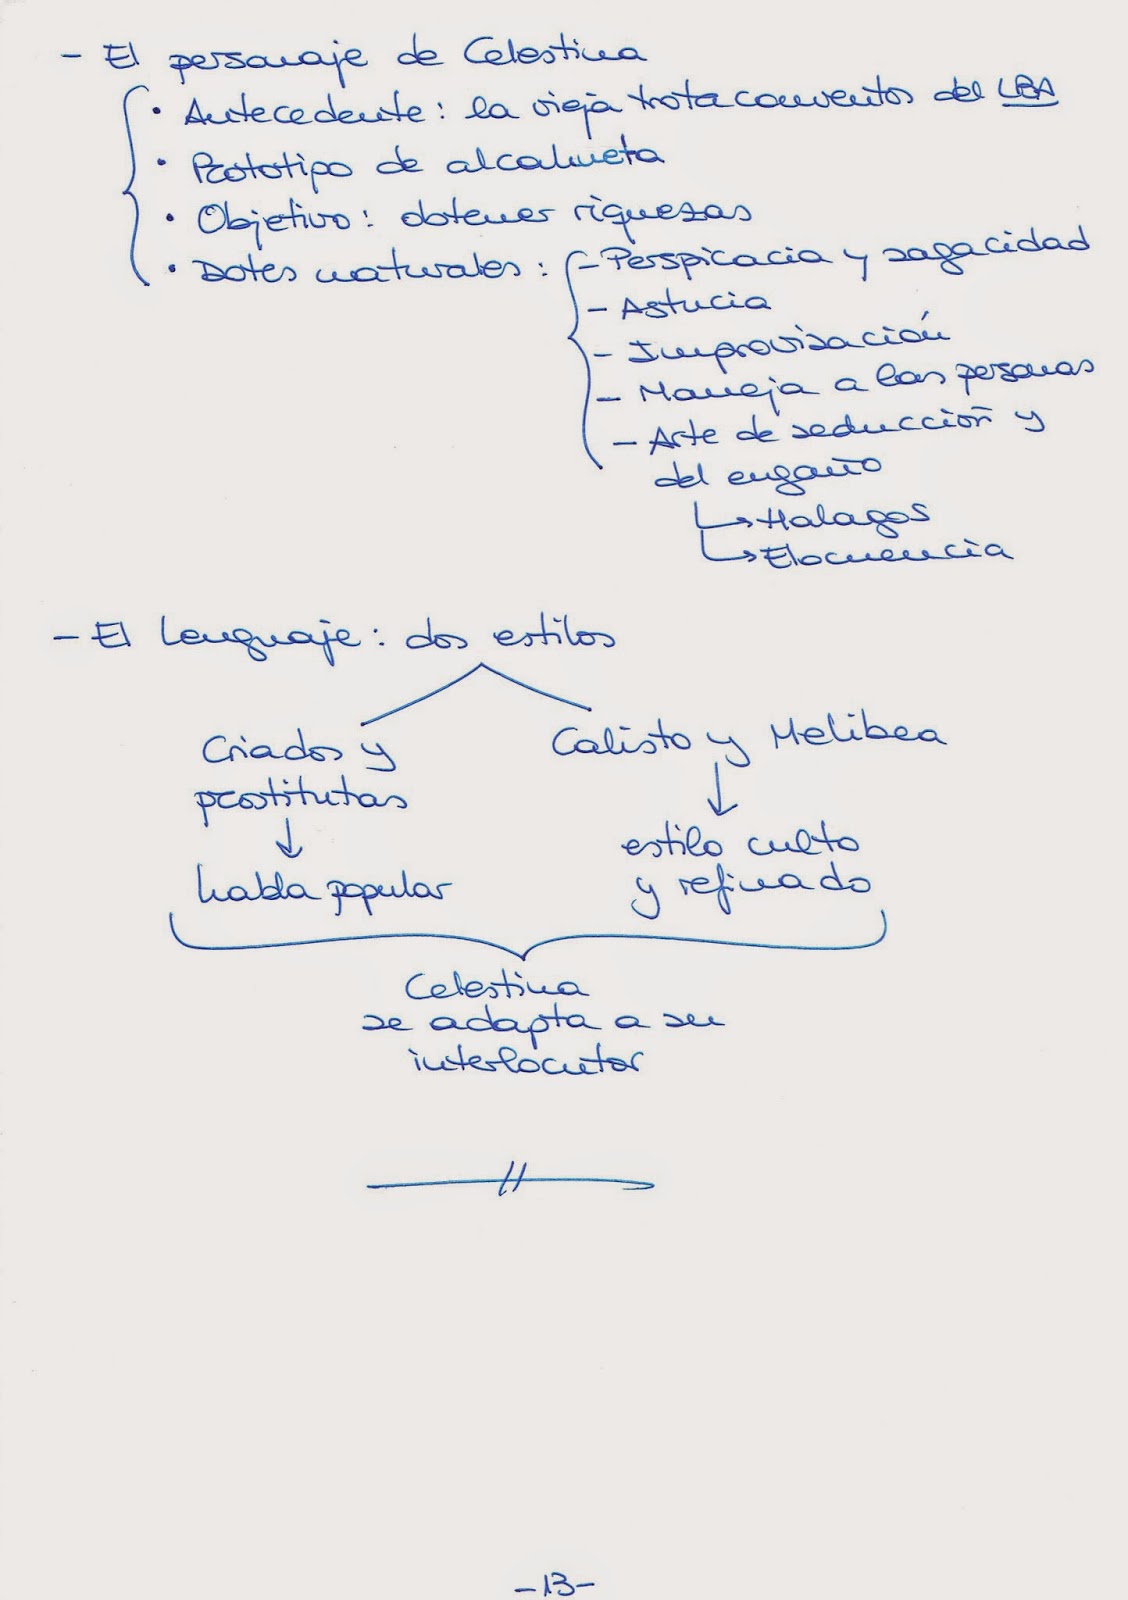 - El personaje de Celestina
· Antecedente: la vieja trotaconventos del LBA
· Prototipo de alcahueta
· Objetivo: obtener riquezas
· Dotes naturales: - Perspicacia y sagacidad
- Astucia
- Improvisación
- Maneja a las personas
- Arte de seducción y
del engaño
↳ Halagos
↳ Elocuencia
- El lenguaje: dos estilos
Criados y
prostitutas
↓
habla popular
Calisto y Melibea
↓
estilo culto
y refinado
Celestina
se adapta a su
interlocutor
-13-